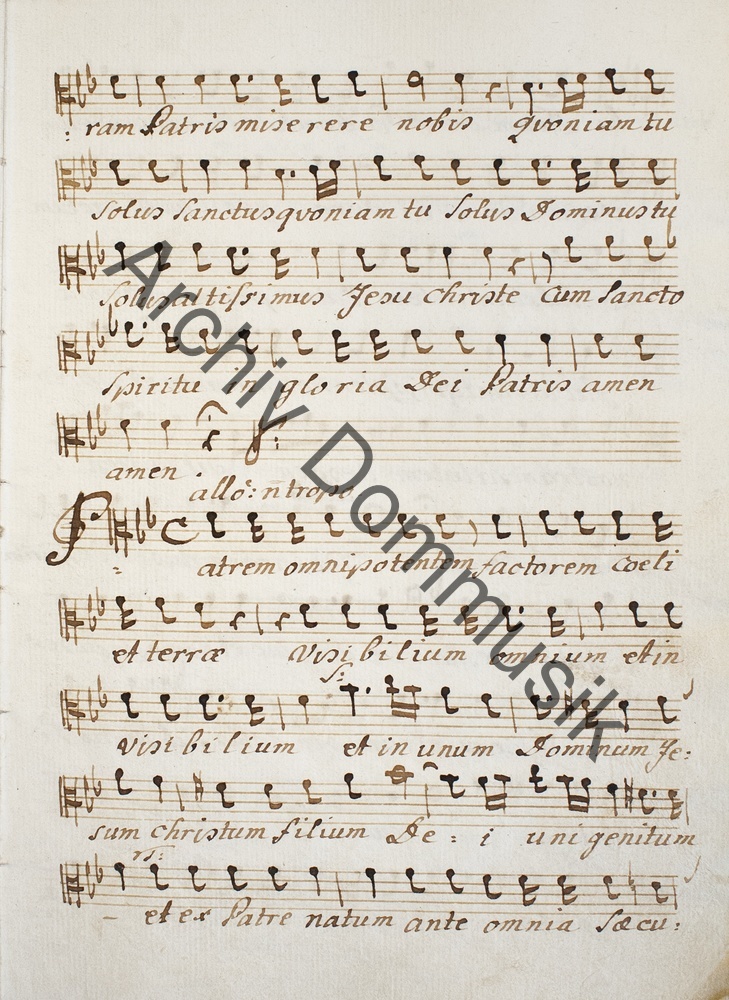 : ram Patris miserere nobis qvoniam tu
solus sanctus qvoniam tu solus Dominus tu
solus altissimus Jesu christe cum sancto
spiritu in gloria Dei Patris amen
amen.
allo: ntropo
Patrem omnipotentem factorem coeli
et terræ visibilium omnium et in
S:
visibilium et in unum Dominum Je:
sum christum filium De: i unigenitum
et ex Patre natum ante omnia sæcu:
Archiv Dommusik